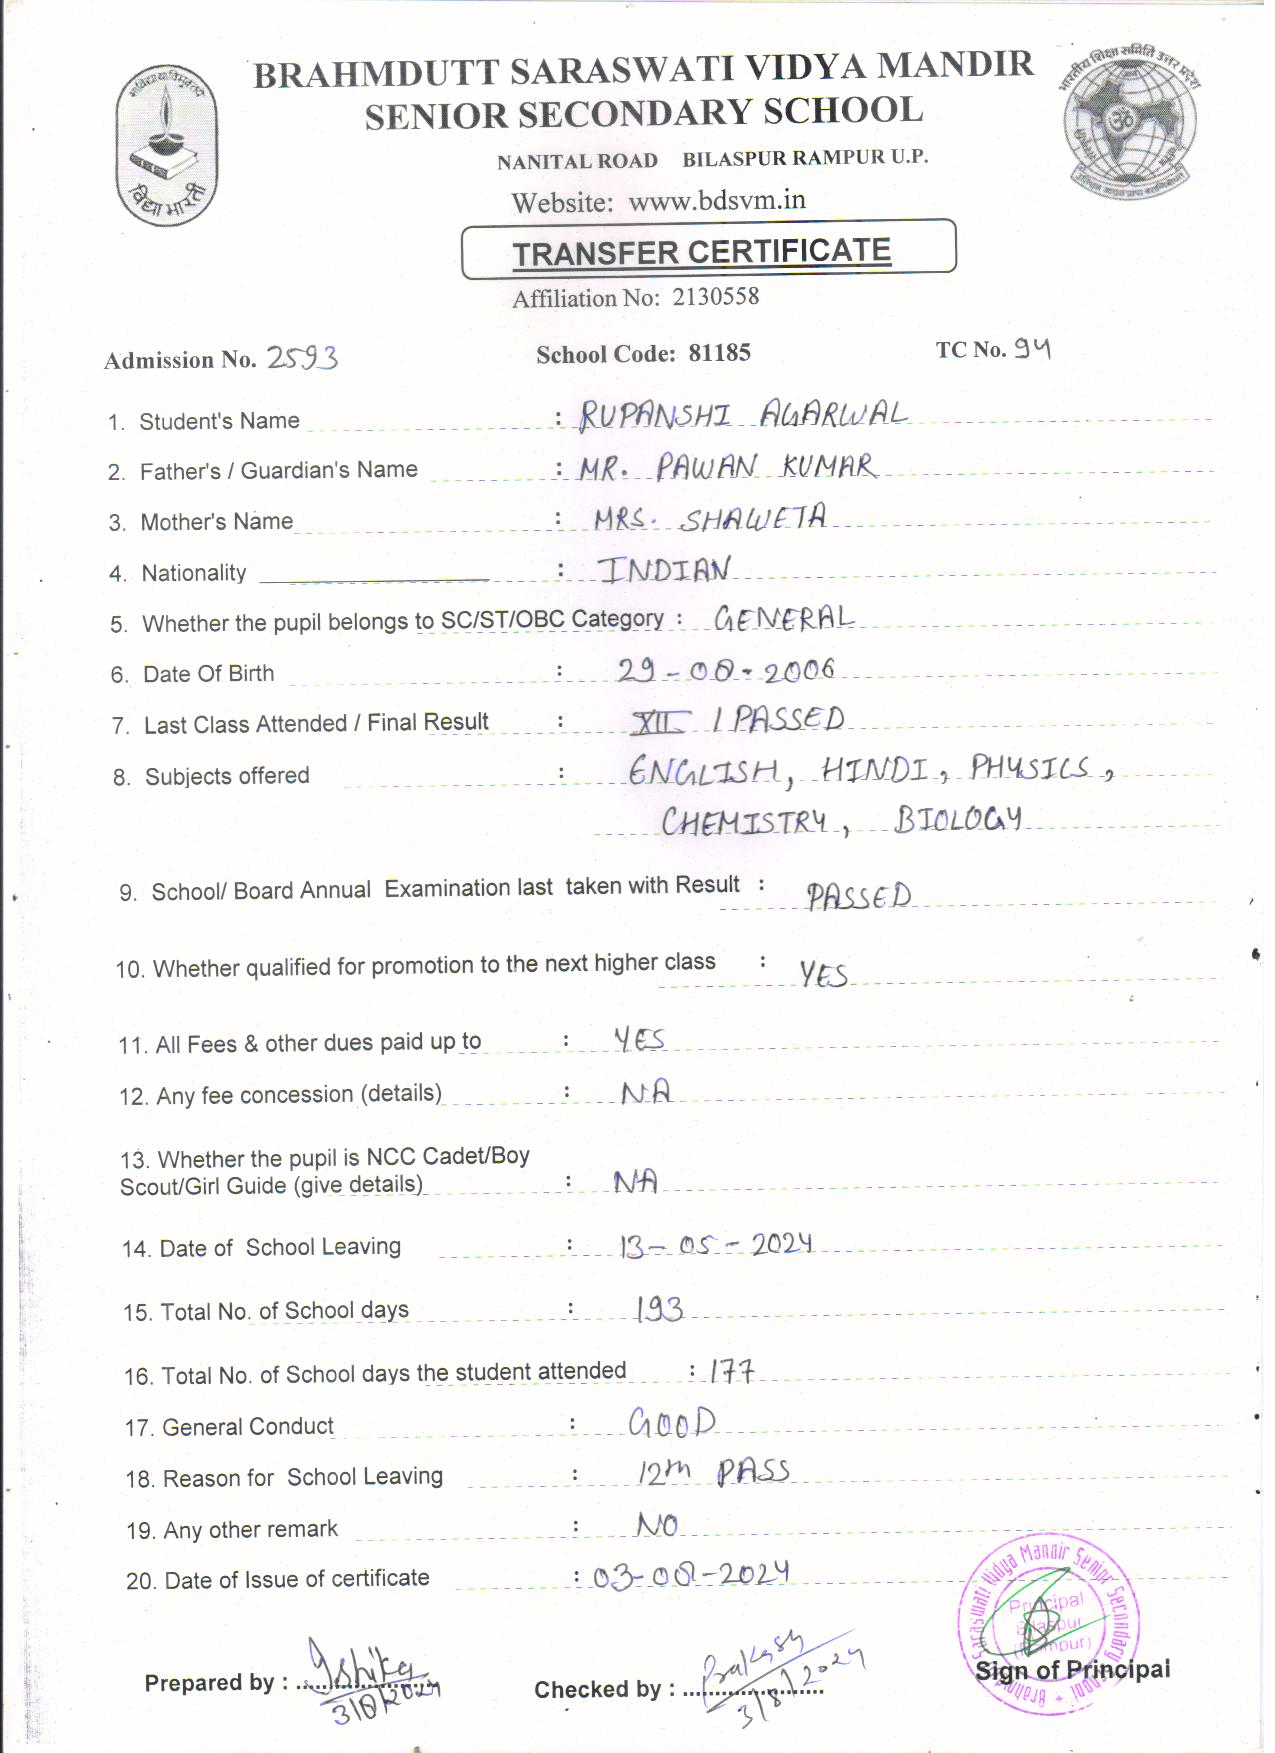 BRAHMDUTT SARASWATI VIDYA MANDIR
SENIOR SECONDARY SCHOOL
NANITAL ROAD BILASPUR RAMPUR U.P.
Website: www.bdsvm.in
विद्या भारती
भारतीय शिक्षा समिति उत्तर प्रदेश
TRANSFER CERTIFICATE
Affiliation No: 2130558
Admission No. 2593 School Code: 81185 TC No. 94
1. Student's Name : RUPANSHI AGARWAL
2. Father's / Guardian's Name : MR. PAWAN KUMAR
3. Mother's Name : MRS. SHAWETA
4. Nationality : INDIAN
5. Whether the pupil belongs to SC/ST/OBC Category : GENERAL
6. Date Of Birth : 29-08-2006
7. Last Class Attended / Final Result : XII / PASSED
8. Subjects offered : ENGLISH, HINDI, PHYSICS,
CHEMISTRY, BIOLOGY
9. School/ Board Annual Examination last taken with Result : PASSED
10. Whether qualified for promotion to the next higher class : YES
11. All Fees & other dues paid up to : YES
12. Any fee concession (details) : NA
13. Whether the pupil is NCC Cadet/Boy
Scout/Girl Guide (give details) : NA
14. Date of School Leaving : 13-05-2024
15. Total No. of School days : 193
16. Total No. of School days the student attended : 177
17. General Conduct : GOOD
18. Reason for School Leaving : 12th PASS
19. Any other remark : NO
20. Date of Issue of certificate : 03-08-2024
Saraswati Vidya Mandir Senior Secondary School
Principal
Bilaspur
(Rampur)
Prepared by : Ishika
3/8/2024
Checked by : Prakash
3/8/2024
Sign of Principal